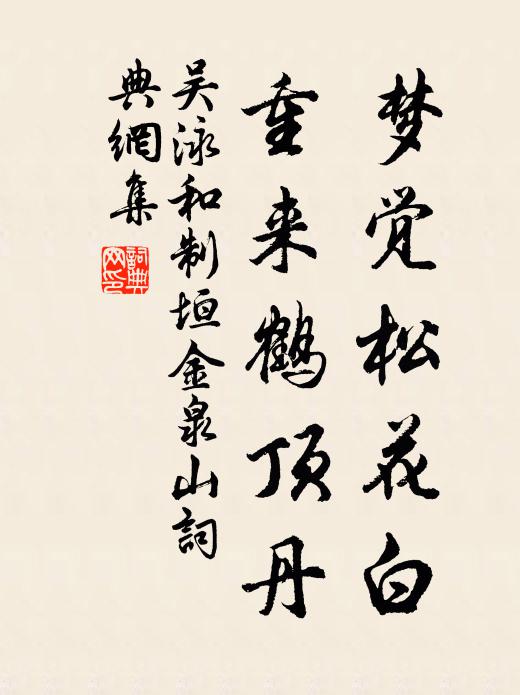 梦觉松花白
重来鹤顶丹
吴泳和制垣金泉山詞
典網集
詞典
网印